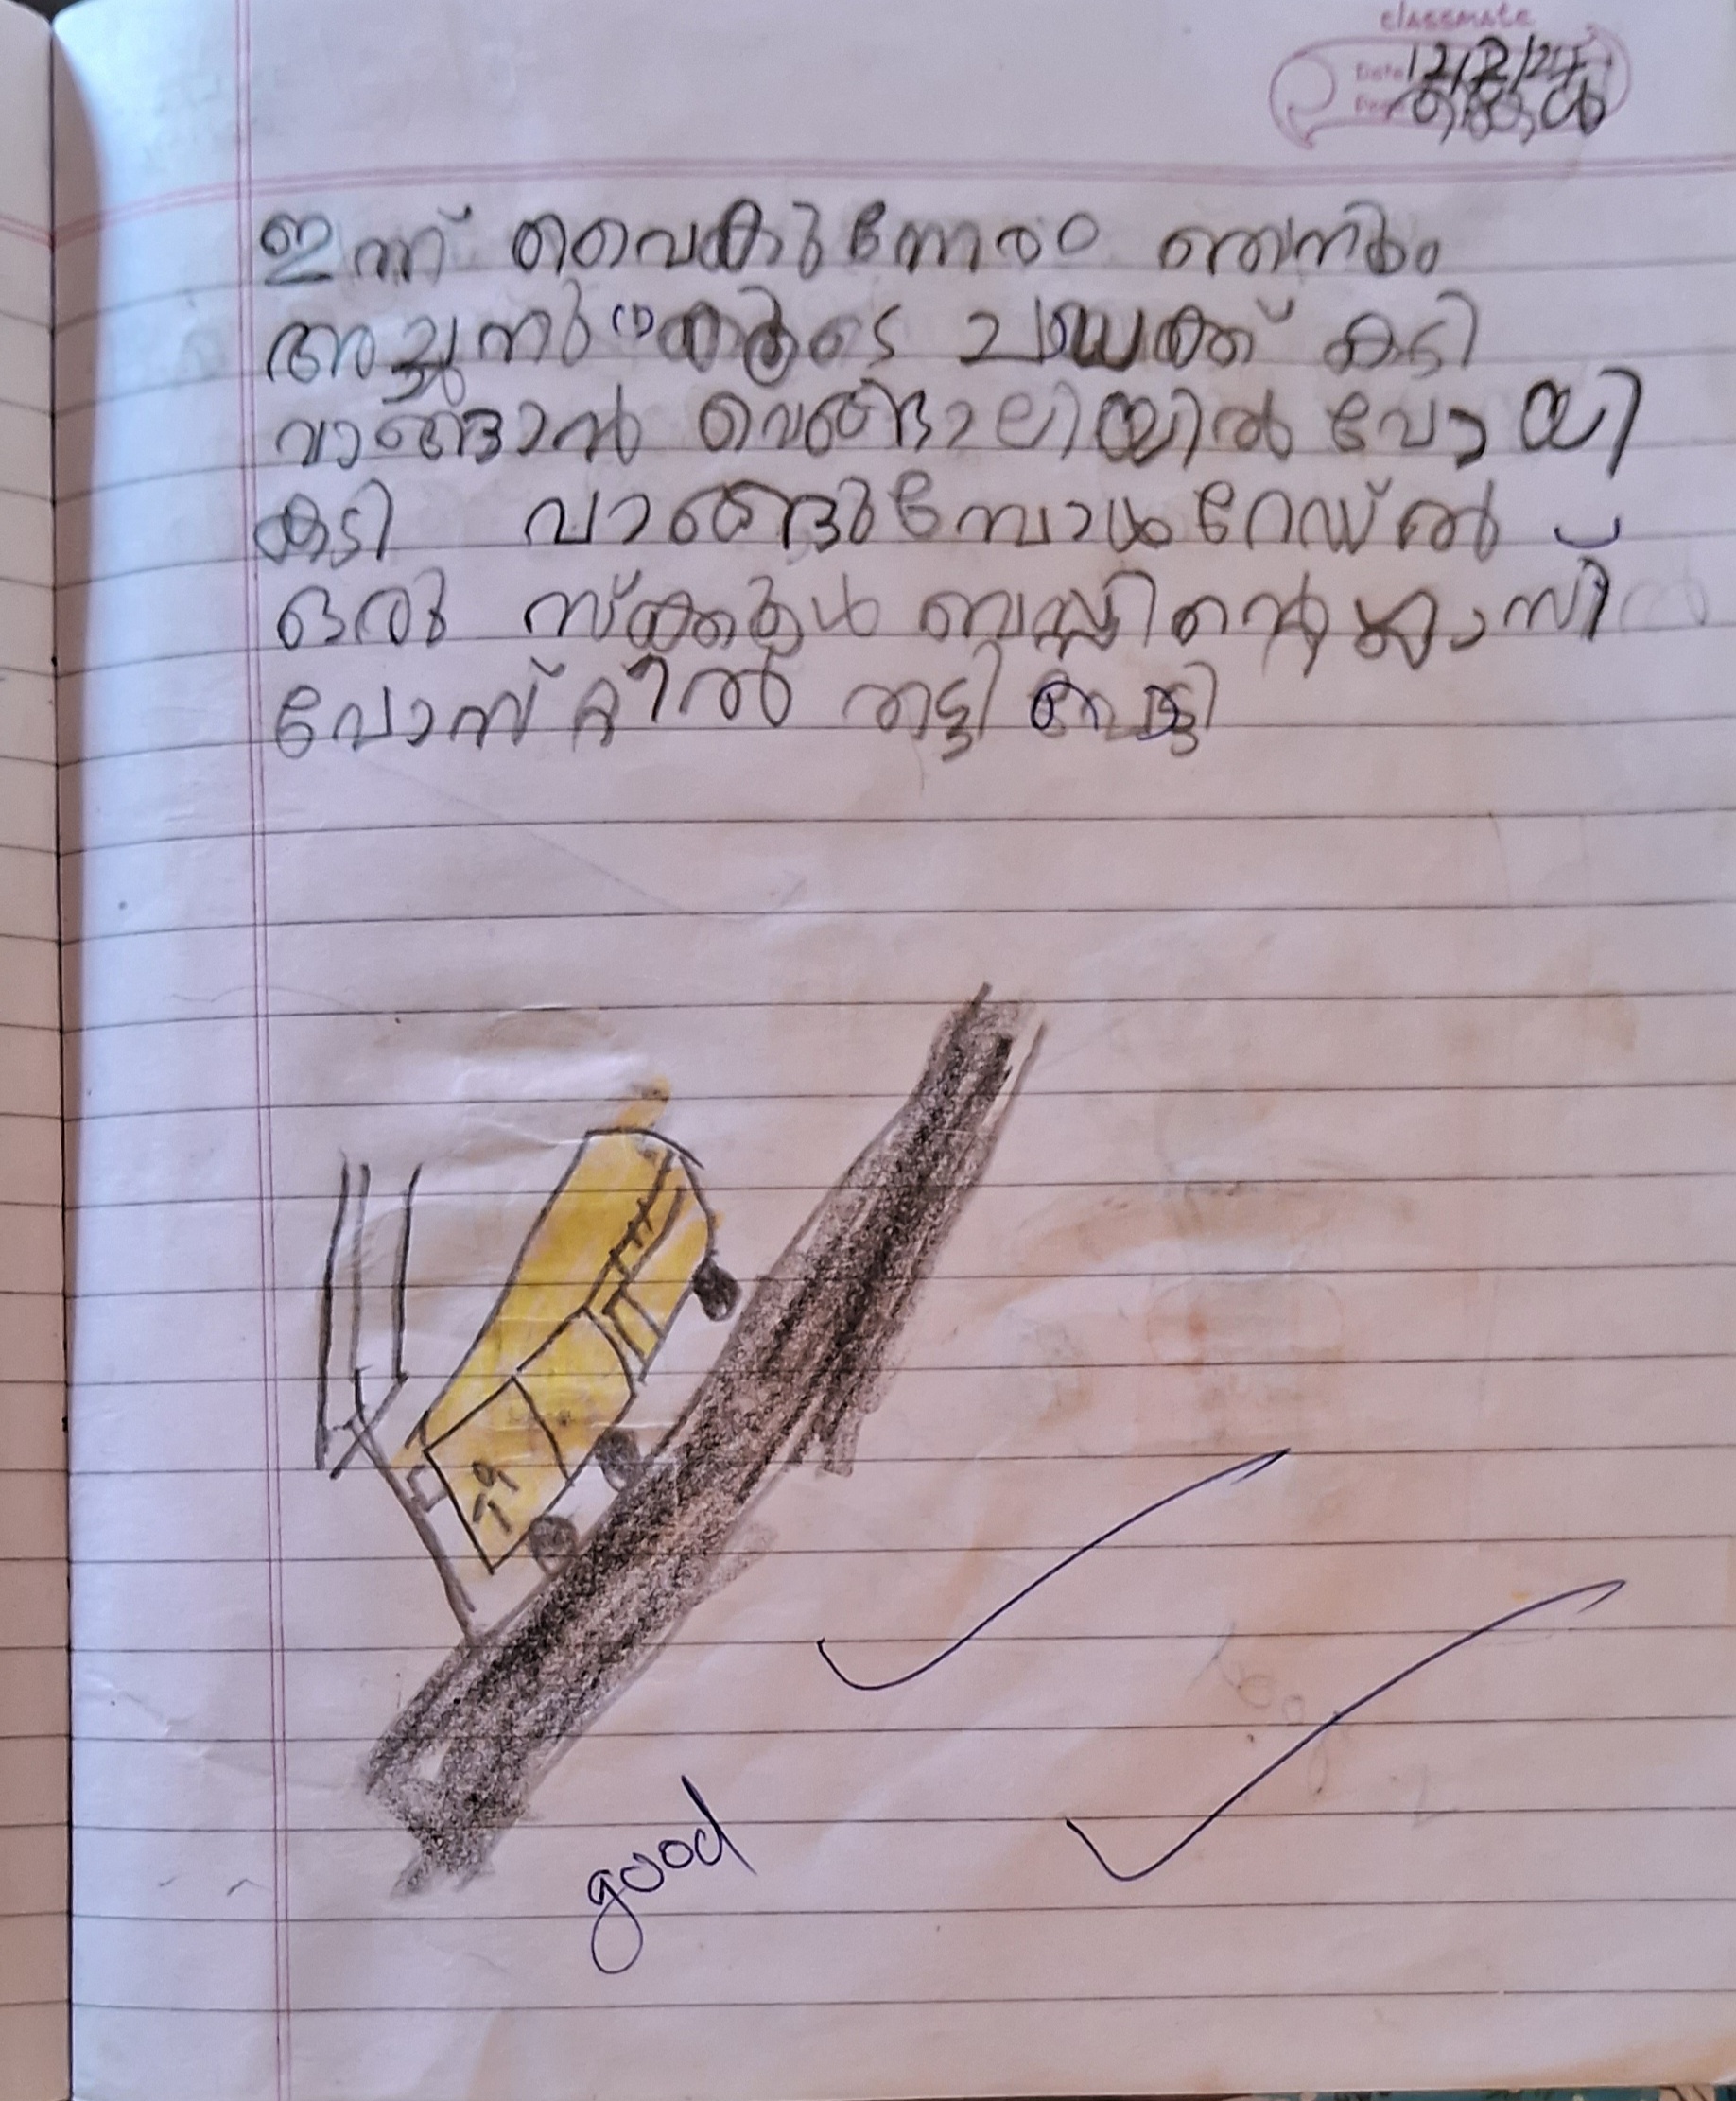 classmate
Date 12/2/24
Page
ഇന്ന് വൈകുന്നേരം ഞനും
അച്ചനും കൂടെ ചയക്ക് കടി
വാങ്ങാൻ വെങ്ങാലിയിൽ പോയി
കടി വാങ്ങുമ്പോൾ റോഡിൽ
ഒരു സ്ക്കൂൾ ബസ്സിന്റെ ഗ്ലാസിൽ
പോസ്റ്റിൽ തട്ടി പൊട്ടി
good